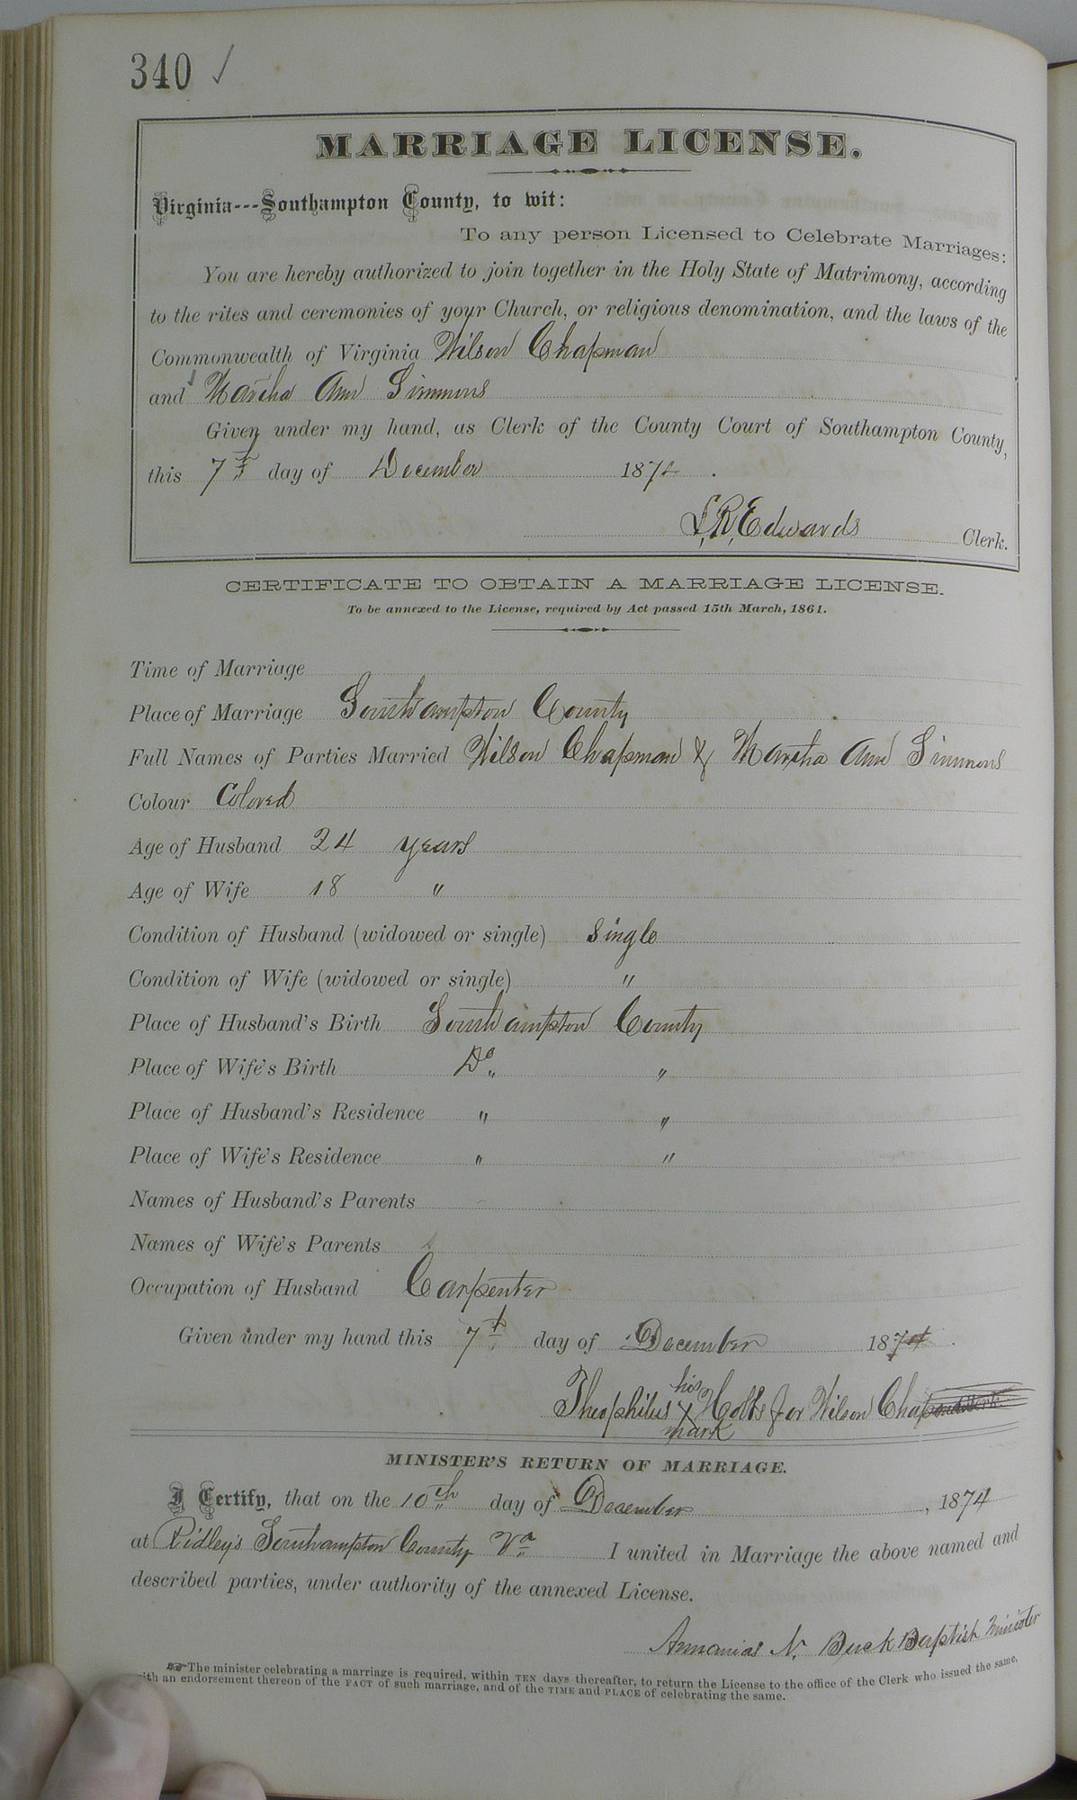 340 ✓
MARRIAGE LICENSE.
Virginia---Southampton County, to wit:
To any person Licensed to Celebrate Marriages:
You are hereby authorized to join together in the Holy State of Matrimony, according
to the rites and ceremonies of your Church, or religious denomination, and the laws of the
Commonwealth of Virginia Wilson Chapman
and Martha Ann Simmons
Given under my hand, as Clerk of the County Court of Southampton County,
this 7th day of December 1874.
L. R. Edwards Clerk.
CERTIFICATE TO OBTAIN A MARRIAGE LICENSE.
To be annexed to the License, required by Act passed 15th March, 1861.
Time of Marriage
Place of Marriage Southampton County
Full Names of Parties Married Wilson Chapman & Martha Ann Simmons
Colour Colored
Age of Husband 24 years
Age of Wife 18 "
Condition of Husband (widowed or single) Single
Condition of Wife (widowed or single) "
Place of Husband's Birth Southampton County
Place of Wife's Birth Do "
Place of Husband's Residence " "
Place of Wife's Residence " "
Names of Husband's Parents
Names of Wife's Parents
Occupation of Husband Carpenter
Given under my hand this 7th day of December 1874.
his
Theophilus X Holts for Wilson Chap
mark
MINISTER'S RETURN OF MARRIAGE.
I Certify, that on the 10th day of December, 1874
at Ridley's Southampton County Va I united in Marriage the above named and
described parties, under authority of the annexed License.
Annanias N. Buck Baptist Minister
The minister celebrating a marriage is required, within TEN days thereafter, to return the License to the office of the Clerk who issued the same,
with an endorsement thereon of the FACT of such marriage, and of the TIME and PLACE of celebrating the same.